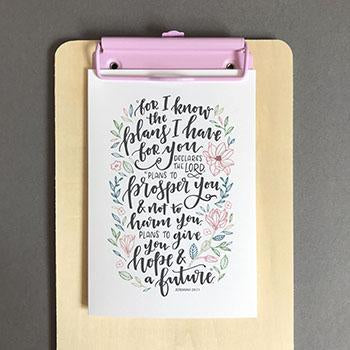 for I know
the
plans I have
for you
DECLARES
THE LORD,
PLANS TO
prosper you
& not to
harm you,
PLANS TO give
you
hope &
a future.
JEREMIAH 29:11